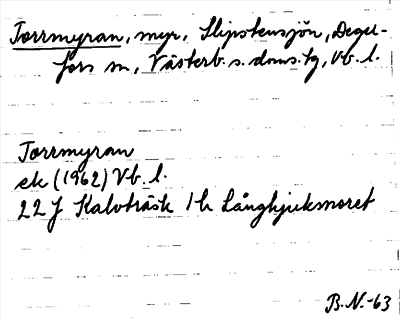 Torrmyran, myr, Slipstensjön, Deger-
fors sn, Västerb. s. doms. tg, Vb. l.
Torrmyran
ek (1962) Vb. l.
22 J Kalvträsk 1 h Långhjuksmoret
B.N.-63